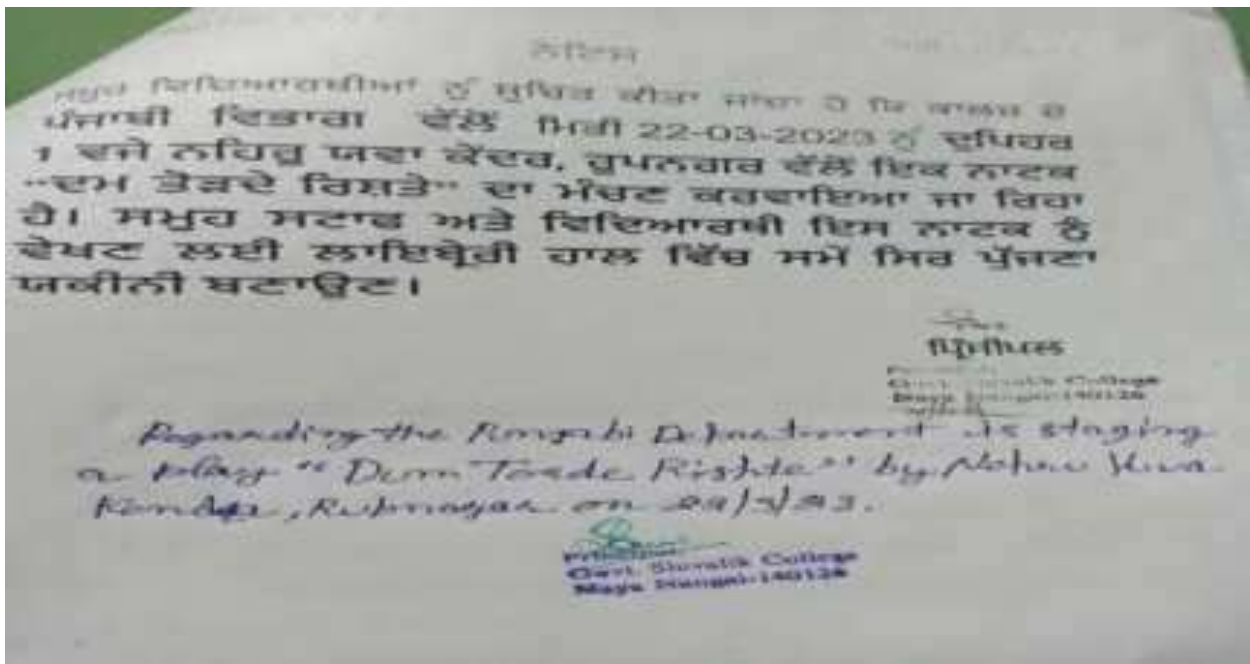 ਨੋਟਿਸ
ਸਮੂਹ ਵਿਦਿਆਰਥੀਆਂ ਨੂੰ ਸੂਚਿਤ ਕੀਤਾ ਜਾਂਦਾ ਹੈ ਕਿ ਕਾਲਜ ਦੇ
ਪੰਜਾਬੀ ਵਿਭਾਗ ਵੱਲੋਂ ਮਿਤੀ 22-03-2023 ਨੂੰ ਦੁਪਿਹਰ
1 ਵਜੇ ਨਹਿਰੂ ਯੁਵਾ ਕੇਂਦਰ, ਰੂਪਨਗਰ ਵੱਲੋਂ ਇਕ ਨਾਟਕ
"ਦਮ ਤੋੜਦੇ ਰਿਸ਼ਤੇ" ਦਾ ਮੰਚਣ ਕਰਵਾਇਆ ਜਾ ਰਿਹਾ
ਹੈ। ਸਮੂਹ ਸਟਾਫ ਅਤੇ ਵਿਦਿਆਰਥੀ ਇਸ ਨਾਟਕ ਨੂੰ
ਵੇਖਣ ਲਈ ਲਾਇਬ੍ਰੇਰੀ ਹਾਲ ਵਿੱਚ ਸਮੇਂ ਸਿਰ ਪੁੱਜਣਾ
ਯਕੀਨੀ ਬਣਾਉਣ।
ਪ੍ਰਿੰਸੀਪਲ
Govt. Shivalik College
Naya Nangal-140126
Regarding the Punjabi Department is staging
a play "Dum Torde Rishte" by Nehru Yuva
Kendra, Rupnagar on
Principal
Govt. Shivalik College
Naya Nangal-140126